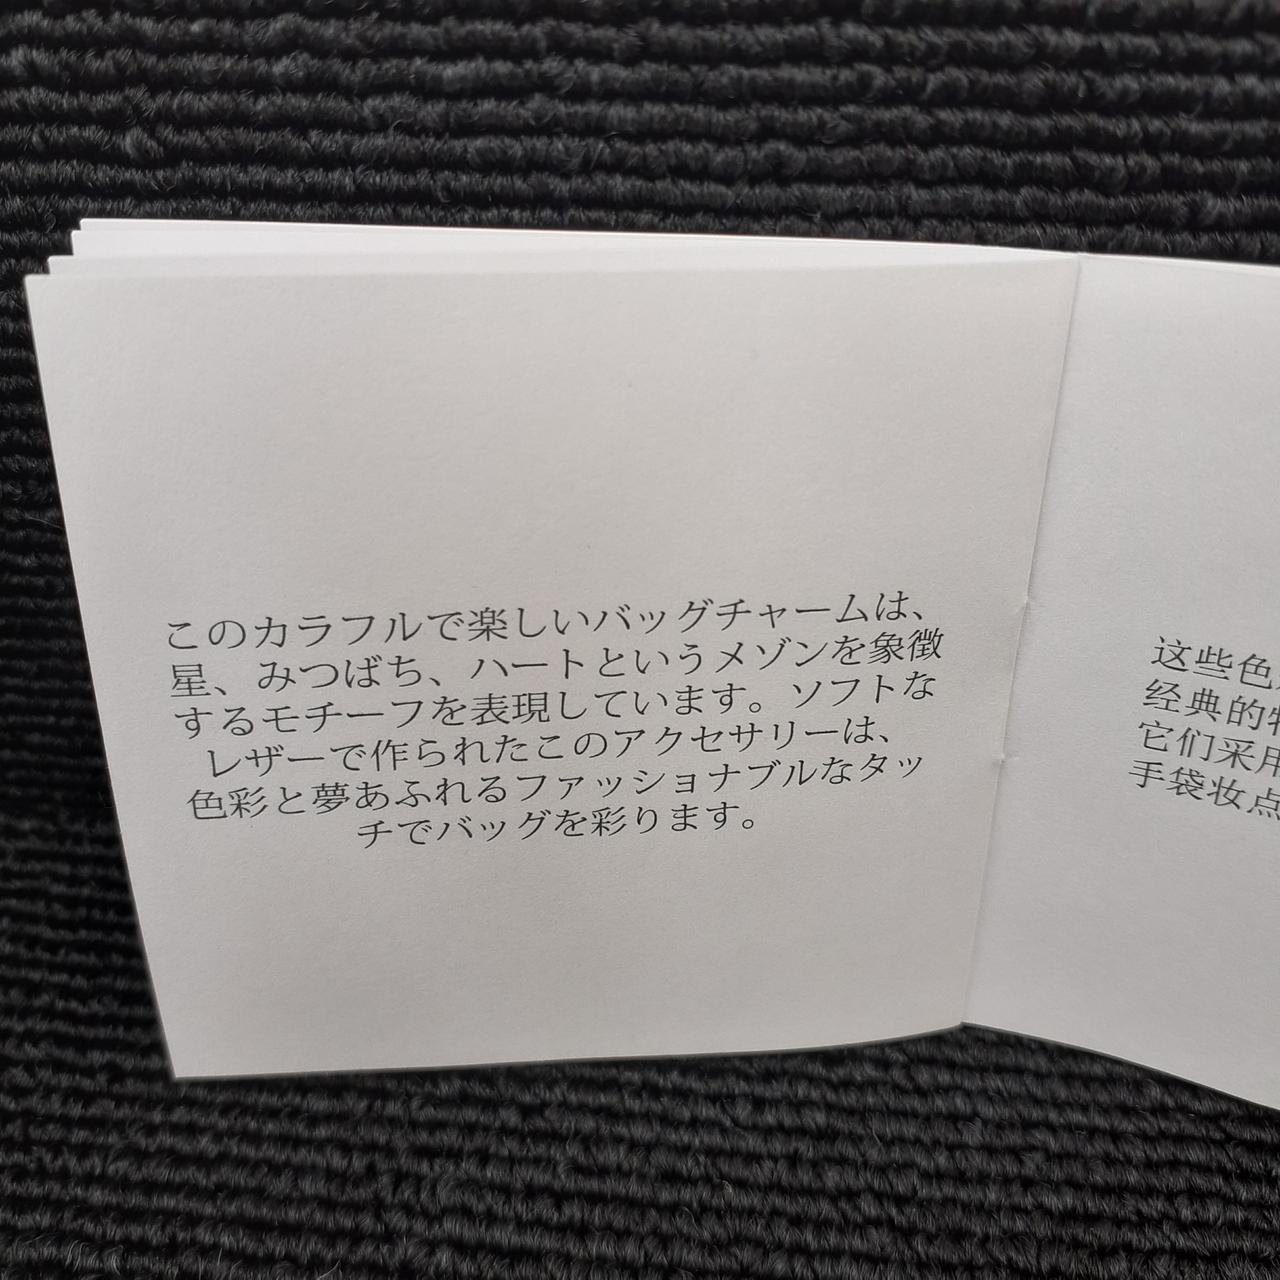 このカラフルで楽しいバッグチャームは、
星、みつばち、ハートというメゾンを象徴
するモチーフを表現しています。ソフトな
レザーで作られたこのアクセサリーは、
色彩と夢あふれるファッショナブルなタッ
チでバッグを彩ります。
这些色
经典的特
它们采用
手袋妆点